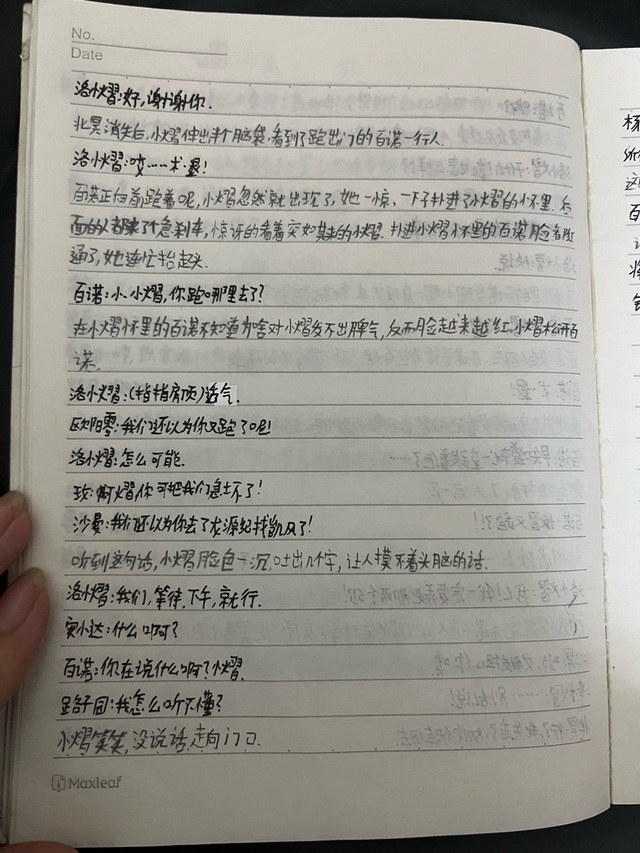 No.
Date
洛小熠:好,谢谢你.
北冥消失后,小熠伸出半个脑袋,看到了跑出门的百诺一行人.
洛小熠:哎……术 最!
百诺正向前跑着呢,小熠忽然就出现了,她一惊,一下子扑进了小熠的小怀里.后
面的人都来了个急刹车,惊讶的看着突如其来的小熠.扑进小熠怀里的百诺脸有点
通了,她连忙抬起头.
百诺:小.小熠,你跑哪里去了?
在小熠怀里的百诺不知道为啥对小熠发不出脾气,反而脸越来越红.小熠松开百
诺.
洛小熠:(指指房顶)透气.
欧阳零:我们还以为你又跑了呢!
洛小熠:怎么可能.
玫:啊熠你可把我们急坏了!
沙曼:我们还以为你去了龙源纪找凯风了!
听到这句话,小熠脸色一沉,吐出几个字,让人摸不着头脑的话.
洛小熠:我们,等待.下午,就行.
奕小达:什么啊?
百诺:你在说什么啊?小熠.
:我怎么听不懂?
小熠笑笑,没说话,走向门口.
Maxleaf